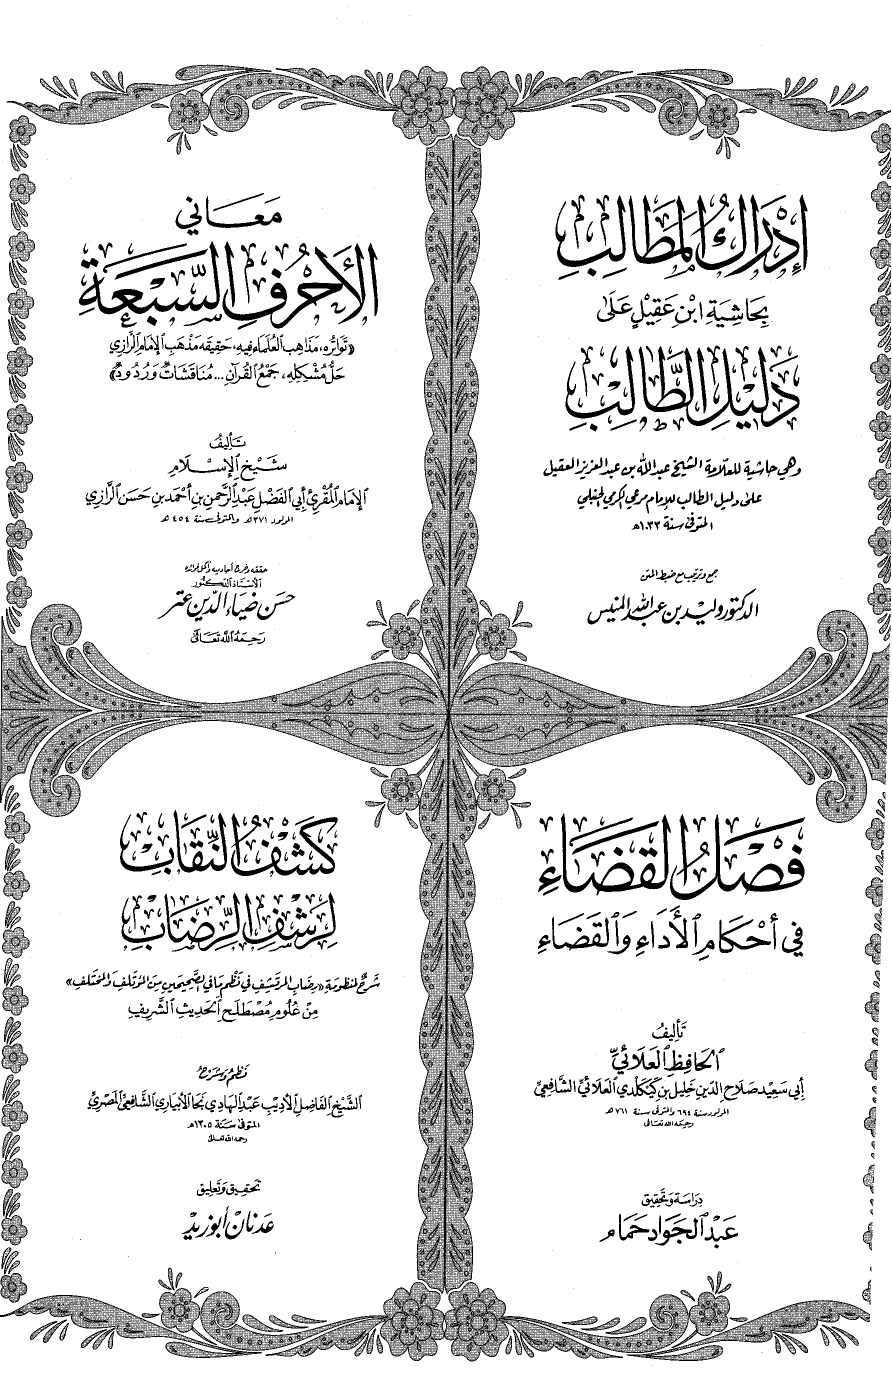 إِدْرَاكُ المَطَالِبِ
بِحَاشِيَةِ ابْنِ عَقِيْلٍ عَلَى
دَلِيْلِ الطَّالِبِ
وهي حاشية للعلّامة الشيخ عبد الله بن عبد العزيز العقيل
على دليل الطالب للإمام مرعي الكرمي الحنبلي
المتوفى سنة ١٠٣٣هـ
جمع وترتيب مع ضبط المتن
الدكتور وليد بن عبد الله المنيس
مَعَاني
الأَحْرُفِ السَّبْعَةِ
«تَوَاتُره، مَذَاهِب العُلمَاء فيه، حَقِيقَة مَذْهَبِ الإمَام الرَّازِي
حَلُّ مُشْكِلِهِ، جَمْعُ القُرآنِ... مُنَاقَشَاتٌ وَرُدُودٌ»
تَأليفُ
شَيْخ الإِسْلَامِ
الإمَام المُقْرِئ أبي الفَضْل عَبْدِ الرَّحْمن بن أَحْمَد بن حَسَن الرَّازي
المولود ٣٧١هـ والمتوفى سنة ٤٥٤هـ
حققه وخرج أحاديثه وأكمل فوائده
الأُسْتَاذ الدّكتُور
حسَن ضِيَاء الدّين عتر
رَحِمَهُ اللهُ تَعَالَى
فَصْلُ القَضَاءِ
في أَحْكَامِ الأَدَاءِ وَالقَضَاءِ
تَأليفُ
الحَافِظِ العَلَائيِّ
أبي سَعِيد صَلَاح الدّين خَليل بن كَيْكَلْدي العَلَائيِّ الشَّافِعيِّ
المولود سنة ٦٩٤ والمتوفى سنة ٧٦١هـ
رحمه الله تعالى
دِرَاسَة وَتَحْقِيق
عَبْد الجَوَاد حَمَام
كَشْفُ النِّقَابِ
لِرَشْفِ الرِّضَابِ
شَرْحٌ لمنظومَةِ «رِضَاب المرتَشِف في نَظْم مَا في الصَّحيحَين مِنَ المُؤتَلف وَالمختَلف»
مِنْ عُلُومِ مُصْطَلَحِ الحَدِيثِ الشَّرِيفِ
نَظْمُ وَشَرْحُ
الشَّيْخ الفَاضِل الأَدِيبِ عَبْد الهَادِي نَجَا الأبيَاري الشَّافِعيِّ المصْرِيِّ
المتوفى سَنة ١٣٠٥هـ
رحمه الله تعالى
تَحْقِيق وَتَعْلِيق
عَدنَان أبُو زيد